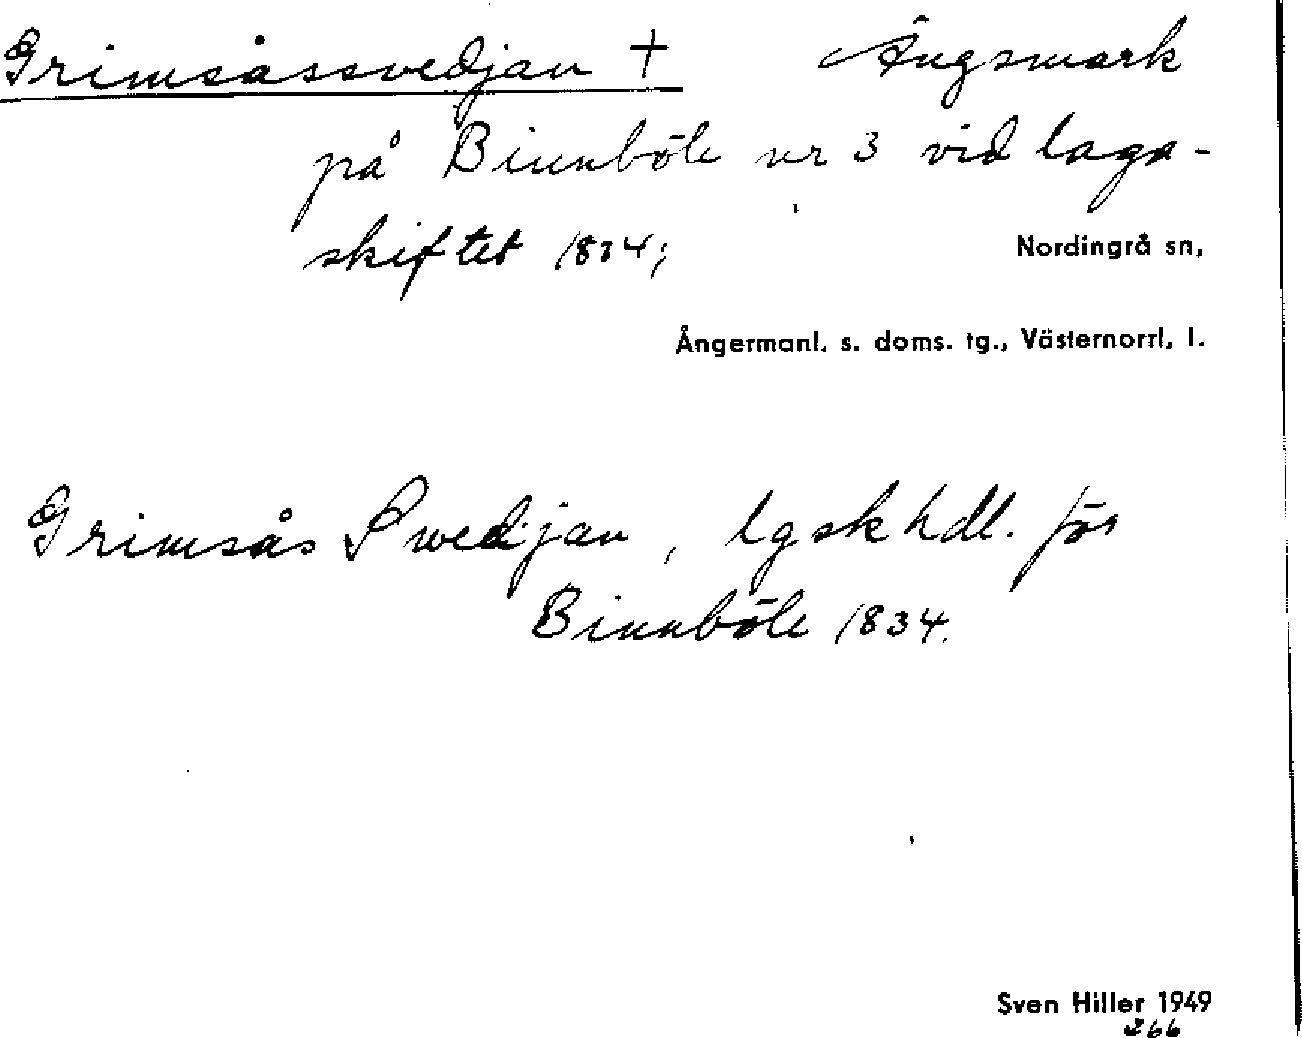 Grimsåssvedjan + Ängsmark
på Binnböle nr 3 vid laga-
skiftet 1834;
Nordingrå sn,
Ångermanl. s. doms. tg., Västernorrl. l.
Grimsås Swedjan, lgskhdl. för
Binnböle 1834.
Sven Hiller 1949
266